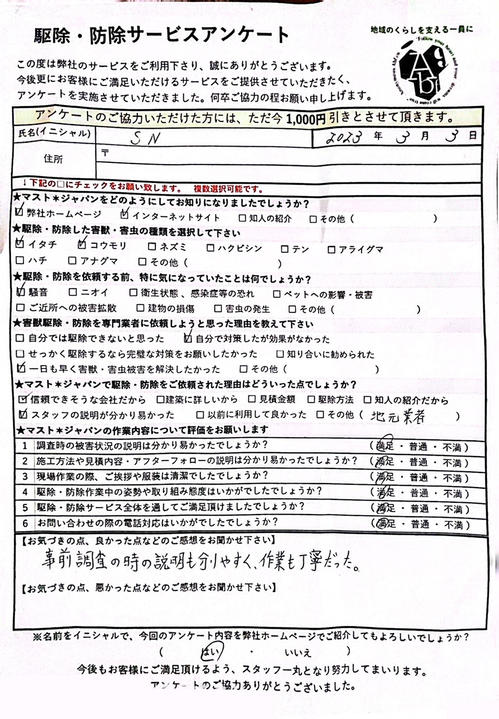 駆除・防除サービスアンケート
地域のくらしを支える一員に
この度は弊社のサービスをご利用下さり、誠にありがとうございます。
今後更にお客様にご満足いただけるサービスをご提供させていただきたく、
アンケートを実施させていただきました。何卒ご協力の程お願い申し上げます。
アンケートのご協力いただけた方には、ただ今1,000円引きとさせて頂きます。
氏名(イニシャル) SN 2023年3月3日
住所 〒
↓下記の□にチェックをお願い致します。 複数選択可能です。
★マスト＊ジャパンをどのようにしてお知りになりましたでしょうか?
☑弊社ホームページ ☑インターネットサイト □知人の紹介 □その他( )
★駆除・防除した害獣・害虫の種類を選択して下さい
☑イタチ ☑コウモリ □ネズミ □ハクビシン □テン □アライグマ
□ハチ □アナグマ □その他( )
★駆除・防除を依頼する前、特に気になっていたことは何でしょうか?
☑騒音 □ニオイ □衛生状態、感染症等の恐れ □ペットへの影響・被害
□ご近所への被害拡散 □建物の損傷 □害虫の発生 □その他( )
★害獣駆除・防除を専門業者に依頼しようと思った理由を教えて下さい
□自分では駆除できないと思った ☑自分で対策したが効果がなかった
□せっかく駆除するなら完璧な対策をお願いしたかった □知り合いに勧められた
☑一日も早く害獣・害虫被害を解決したかった □その他( )
★マスト＊ジャパンで駆除・防除をご依頼された理由はどういった点でしょうか?
☑信頼できそうな会社だから □建築に詳しいから □見積金額 □駆除方法 □知人の紹介だから
☑スタッフの説明が分かり易かった □以前に利用して良かった □その他(地元業者)
★マスト＊ジャパンの作業内容について評価をお願いします
1 調査時の被害状況の説明は分かり易かったでしょうか? (満足・普通・不満)
2 施工方法や見積内容・アフターフォローの説明は分かり易かったでしょうか? (満足・普通・不満)
3 現場作業の際、ご挨拶や服装は清潔でしたでしょうか? (満足・普通・不満)
4 駆除・防除作業中の姿勢や取り組み態度はいかがでしたでしょうか? (満足・普通・不満)
5 駆除・防除サービス全体を通してご満足頂けましたでしょうか? (満足・普通・不満)
6 お問い合わせの際の電話対応はいかがでしたでしょうか? (満足・普通・不満)
【お気づきの点、良かった点などのご感想をお聞かせ下さい】
事前調査の時の説明も分りやすく、作業も丁寧だった。
【お気づきの点、悪かった点などのご感想をお聞かせ下さい】
※名前をイニシャルで、今回のアンケート内容を弊社ホームページでご紹介してもよろしいでしょうか?
( はい ・ いいえ )
今後もお客様にご満足頂けるよう、スタッフ一丸となり努力してまいります。
アンケートのご協力ありがとうございました。